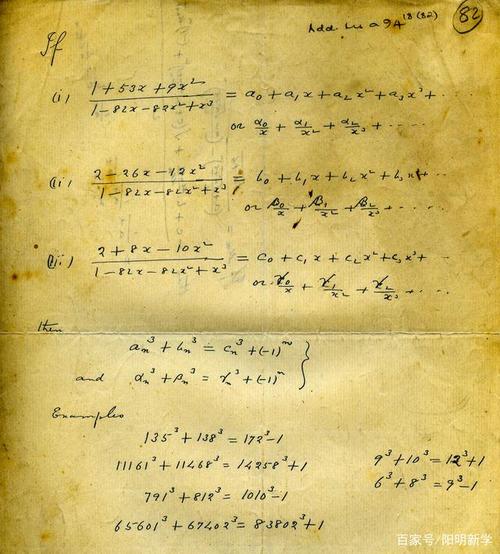 Add. Ms a 94 18 (82)
82
If
(i) (1 + 53x + 9x²)/(1 - 82x - 82x² + x³) = a₀ + a₁x + a₂x² + a₃x³ + ···
or α₀/x + α₁/x² + α₂/x³ + ·····
(ii) (2 - 26x - 12x²)/(1 - 82x - 82x² + x³) = b₀ + b₁x + b₂x² + b₃x³ + ···
or β₀/x + β₁/x² + β₂/x³ + ····
(iii) (2 + 8x - 10x²)/(1 - 82x - 82x² + x³) = c₀ + c₁x + c₂x² + c₃x³ + ··
or γ₀/x + γ₁/x² + γ₂/x³ + ····
then
aₙ³ + bₙ³ = cₙ³ + (-1)ⁿ
and αₙ³ + βₙ³ = γₙ³ + (-1)ⁿ }
Examples
135³ + 138³ = 172³ - 1
11161³ + 11468³ = 14258³ + 1
791³ + 812³ = 1010³ - 1
65601³ + 67402³ = 83802³ + 1
9³ + 10³ = 12³ + 1
6³ + 8³ = 9³ - 1
百家号/阳明新学